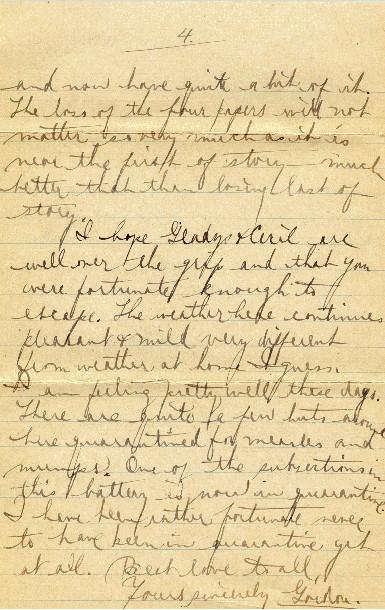 4.
and now have quite a bit of it.
The loss of the four papers will not
matter so very much as it is
near the first of story - much
better that than losing last of
story.
I hope Gladys & Cecil are
well over the grip and that you
were fortunate enough to
escape. The weather here continues
pleasant & mild very different
from weather at home I guess.
I am feeling pretty well these days.
There are quite a few huts around
here quarantined for measles and
mumps. One of the subsections in
this battery is now in quarantine.
I have been rather fortunate never
to have been in quarantine yet
at all. Best love to all,
Yours sincerely Gordon.